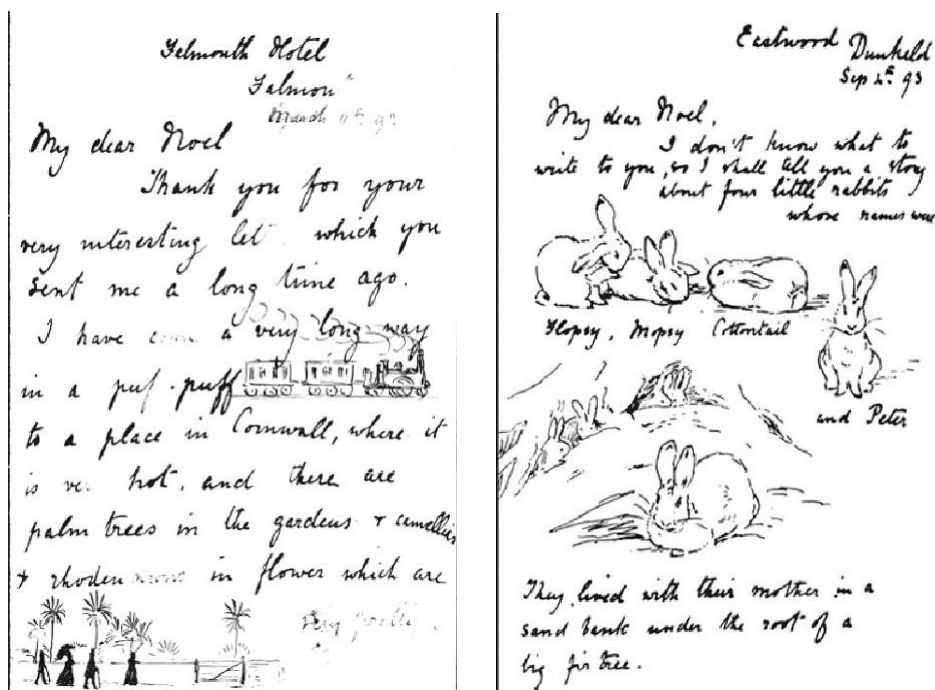 Falmouth Hotel
Falmou
March 11th 92
My dear Noel
Thank you for your
very interesting let which you
sent me a long time ago.
I have come a very long way
in a puf-puff
to a place in Cornwall, where it
is ve hot, and there are
palm trees in the gardens & camellias
& rhododendrons in flower which are
very pretty.
Eastwood Dunkeld
Sep 4th 93
My dear Noel,
I don't know what to
write to you, so I shall tell you a story
about four little rabbits
whose names were
Flopsy, Mopsy Cottontail
and Peter
They lived with their mother in a
sand bank under the root of a
big fir tree.